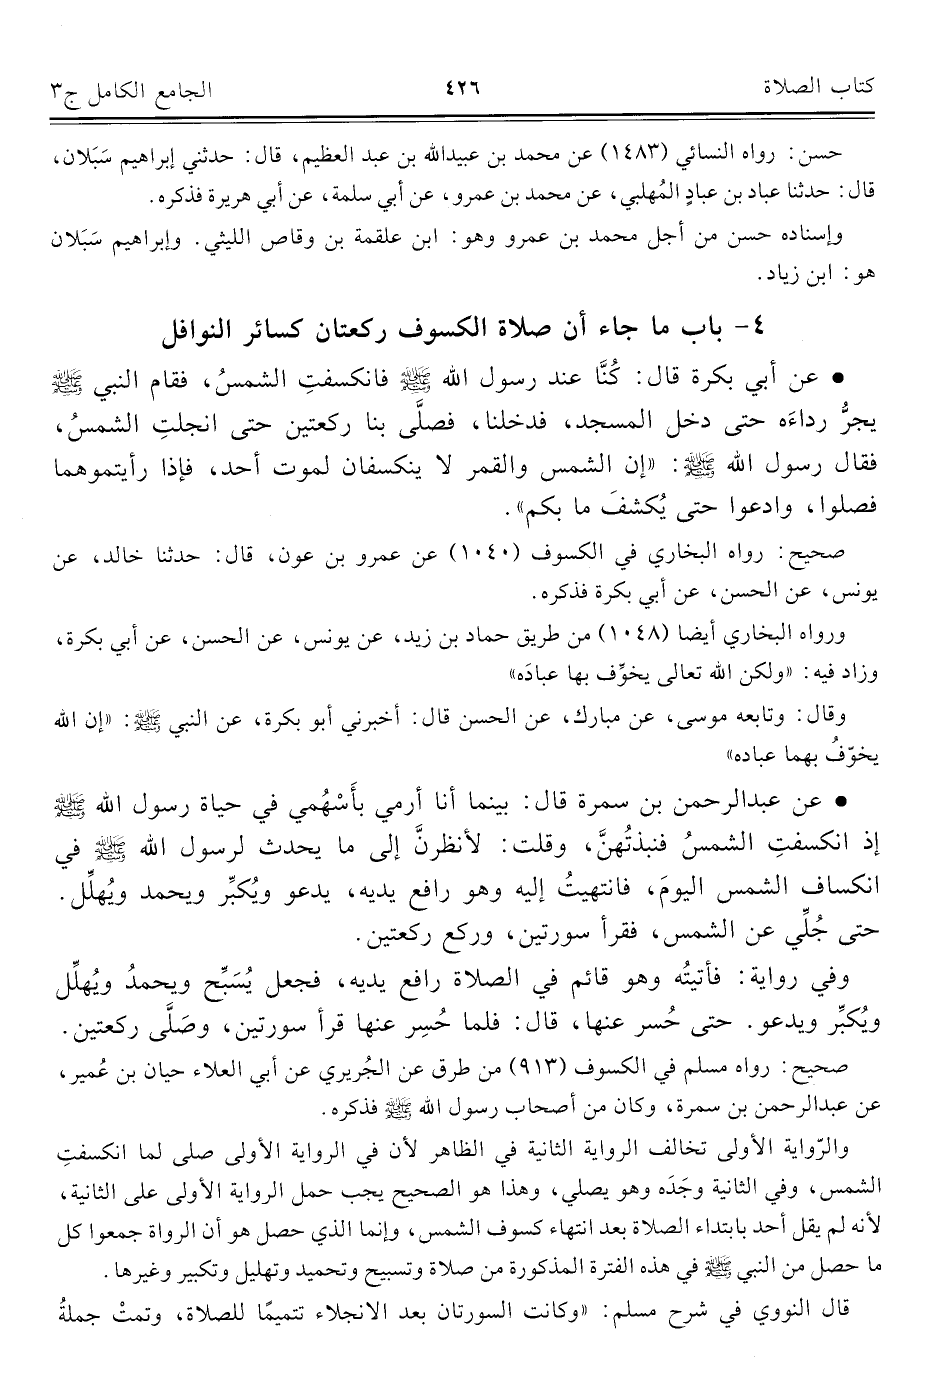 كتاب الصلاة ٤٢٦ الجامع الكامل ج٣
حسن: رواه النسائي (١٤٨٣) عن محمد بن عبيدالله بن عبد العظيم، قال: حدثني إبراهيم سَبَلان،
قال: حدثنا عباد بن عبادٍ المُهلبي، عن محمد بن عمرو، عن أبي سلمة، عن أبي هريرة فذكره.
وإسناده حسن من أجل محمد بن عمرو وهو: ابن علقمة بن وقاص الليثي. وإبراهيم سَبَلان
هو: ابن زياد.
٤- باب ما جاء أن صلاة الكسوف ركعتان كسائر النوافل
● عن أبي بكرة قال: كُنَّا عند رسول الله ﷺ فانكسفتِ الشمسُ، فقام النبي ﷺ
يجرُّ رداءَه حتى دخل المسجد، فدخلنا، فصلَّى بنا ركعتين حتى انجلتِ الشمسُ،
فقال رسول الله ﷺ: «إن الشمس والقمر لا ينكسفان لموت أحد، فإذا رأيتموهما
فصلوا، وادعوا حتى يُكشفَ ما بكم».
صحيح: رواه البخاري في الكسوف (١٠٤٠) عن عمرو بن عون، قال: حدثنا خالد، عن
يونس، عن الحسن، عن أبي بكرة فذكره.
ورواه البخاري أيضا (١٠٤٨) من طريق حماد بن زيد، عن يونس، عن الحسن، عن أبي بكرة،
وزاد فيه: «ولكن الله تعالى يخوِّف بها عبادَه»
وقال: وتابعه موسى، عن مبارك، عن الحسن قال: أخبرني أبو بكرة، عن النبي ﷺ: «إن الله
يخوّفُ بهما عباده»
● عن عبدالرحمن بن سمرة قال: بينما أنا أرمي بأَسْهُمي في حياة رسول الله ﷺ
إذ انكسفتِ الشمسُ فنبذتُهنَّ، وقلت: لأنظرنَّ إلى ما يحدث لرسول الله ﷺ في
انكساف الشمس اليومَ، فانتهيتُ إليه وهو رافع يديه، يدعو ويُكبِّر ويحمد ويُهلِّل.
حتى جُلِّي عن الشمس، فقرأ سورتين، وركع ركعتين.
وفي رواية: فأتيتُه وهو قائم في الصلاة رافع يديه، فجعل يُسَبِّح ويحمدُ ويُهلِّل
ويُكبِّر ويدعو. حتى حُسر عنها، قال: فلما حُسِر عنها قرأ سورتين، وصَلَّى ركعتين.
صحيح: رواه مسلم في الكسوف (٩١٣) من طرق عن الجُريري عن أبي العلاء حيان بن عُمير،
عن عبدالرحمن بن سمرة، وكان من أصحاب رسول الله ﷺ فذكره.
والرّواية الأولى تخالف الرواية الثانية في الظاهر لأن في الرواية الأولى صلى لما انكسفتِ
الشمس، وفي الثانية وجَدَه وهو يصلي، وهذا هو الصحيح يجب حمل الرواية الأولى على الثانية،
لأنه لم يقل أحد بابتداء الصلاة بعد انتهاء كسوف الشمس، وإنما الذي حصل هو أن الرواة جمعوا كل
ما حصل من النبي ﷺ في هذه الفترة المذكورة من صلاة وتسبيح وتحميد وتهليل وتكبير وغيرها.
قال النووي في شرح مسلم: «وكانت السورتان بعد الانجلاء تتميمًا للصلاة، وتمتْ جملةُ